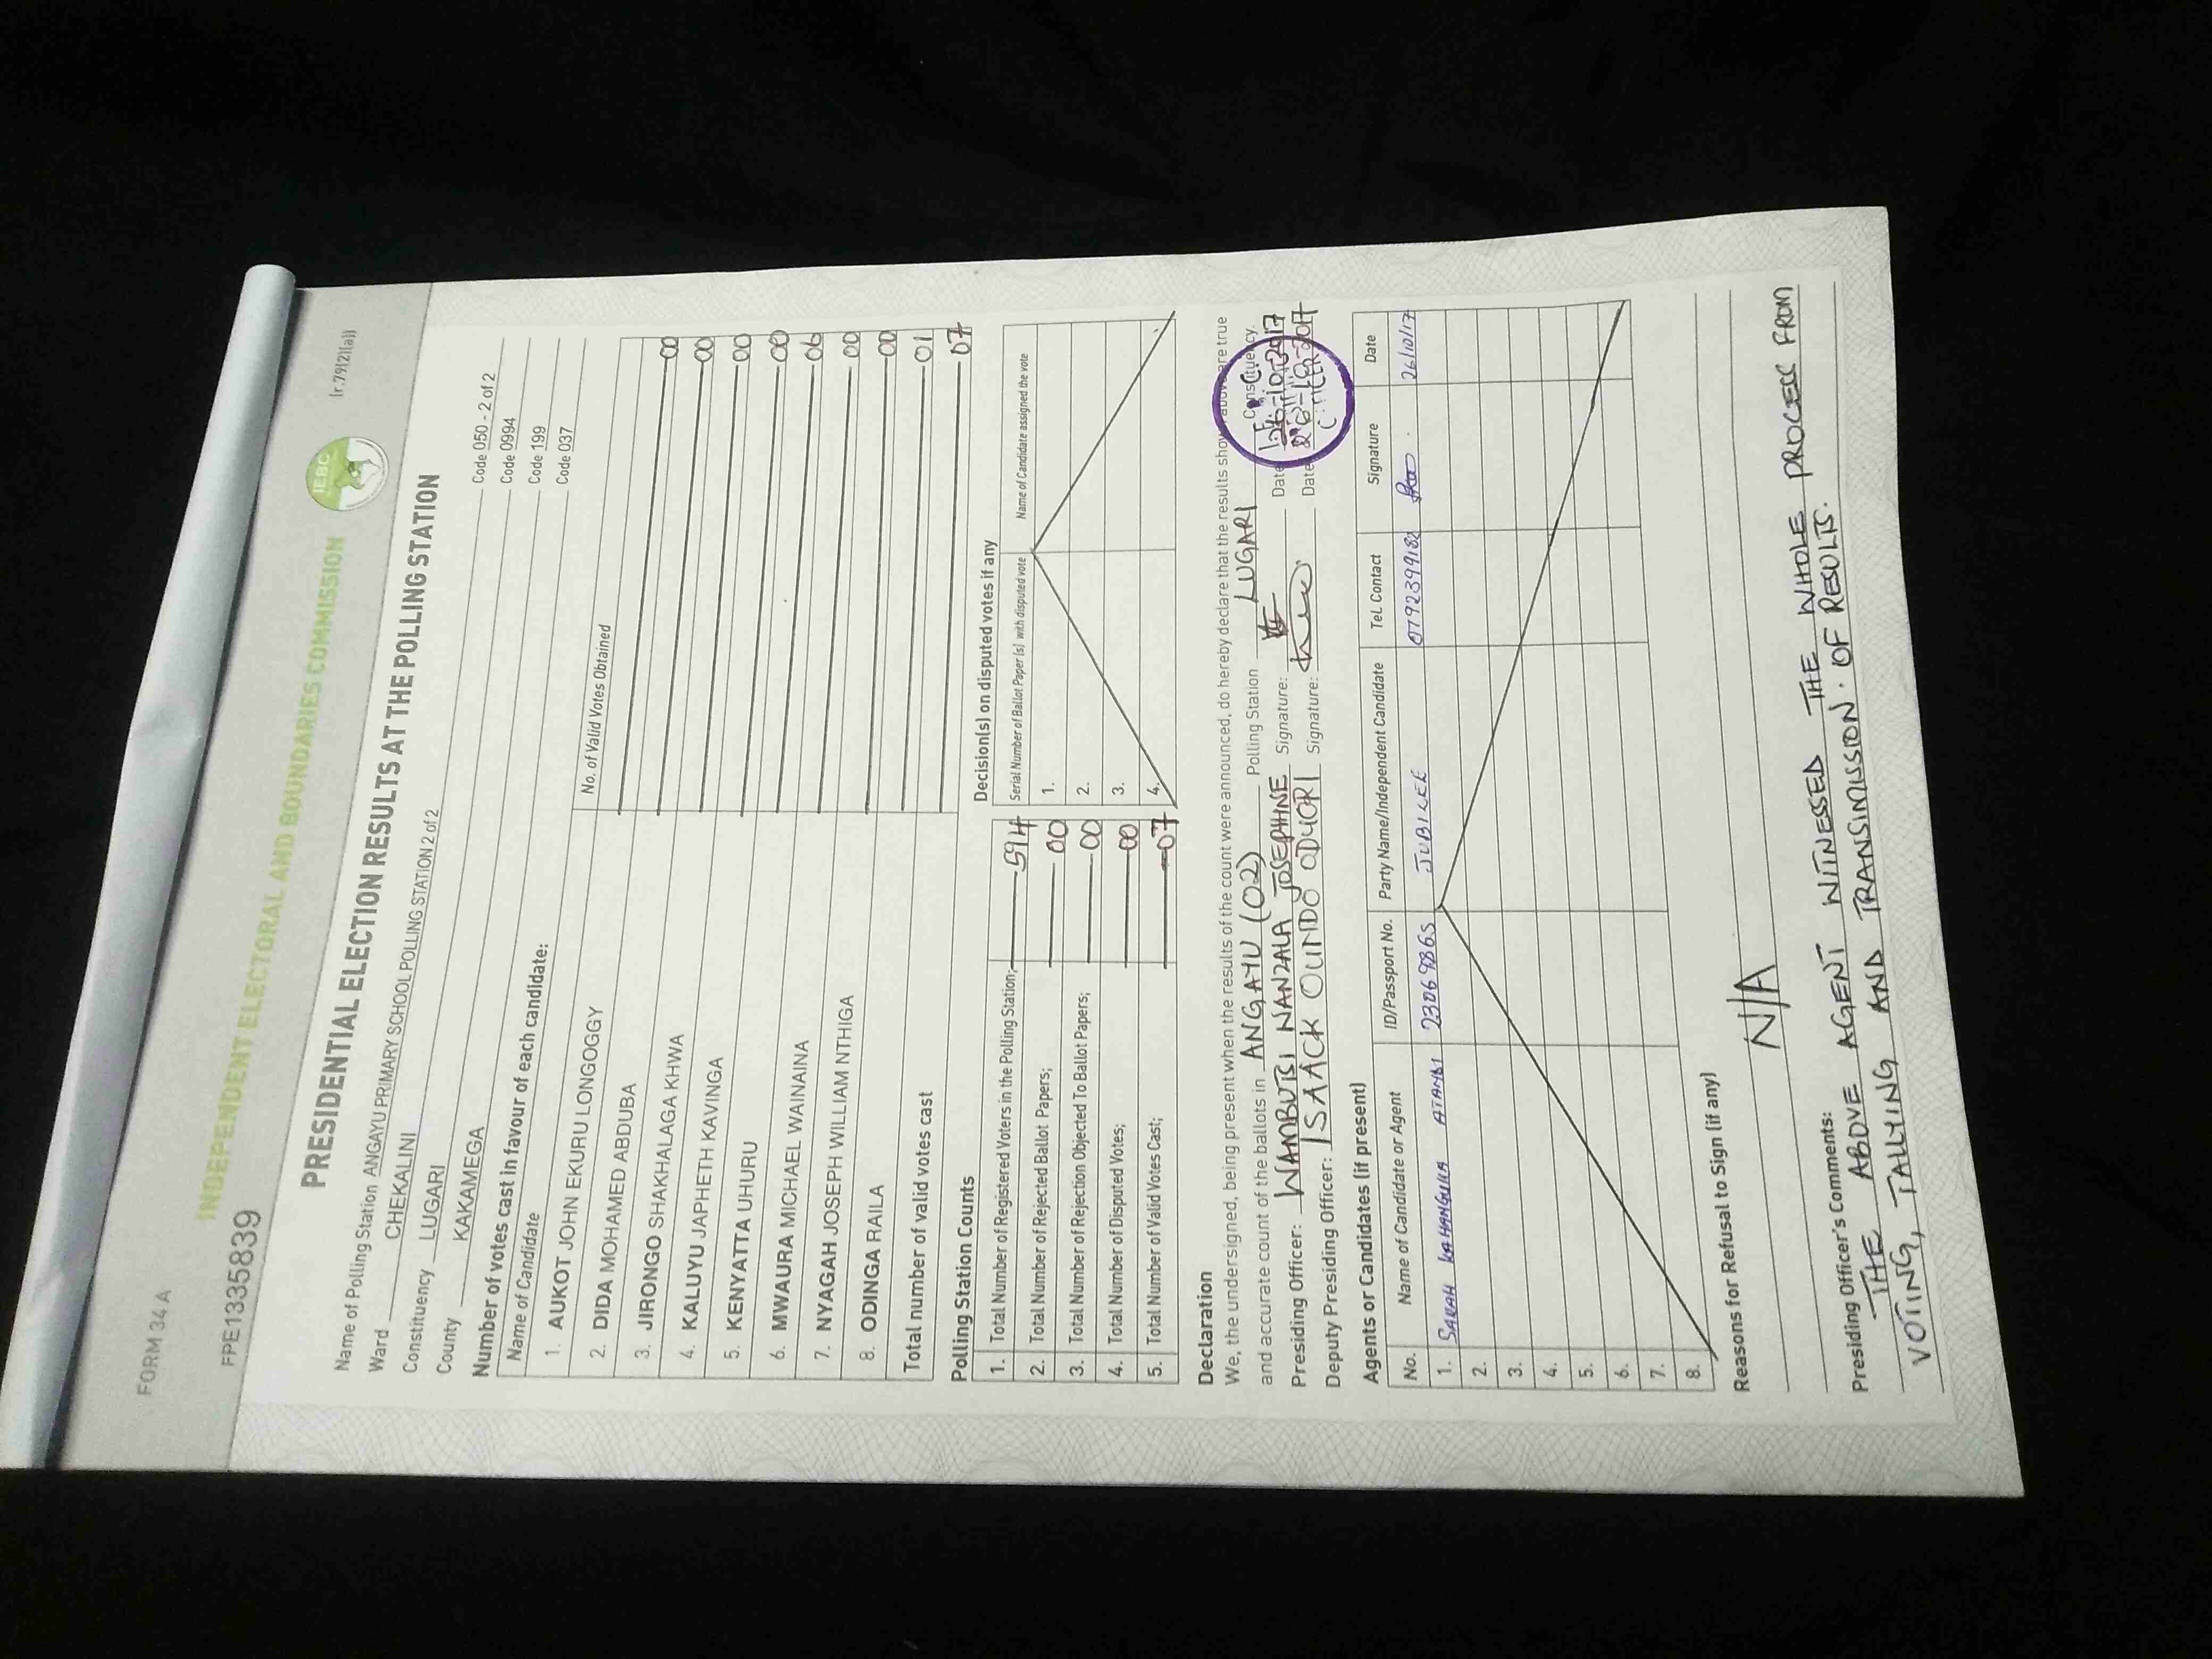 FORM 34 A
(r.79(2)(a))
INDEPENDENT ELECTORAL AND BOUNDARIES COMMISSION
IEBC
FPE1335839
PRESIDENTIAL ELECTION RESULTS AT THE POLLING STATION
Name of Polling Station ANGAYU PRIMARY SCHOOL POLLING STATION 2 of 2 Code 050 - 2 of 2
Ward CHEKALINI Code 0994
Constituency LUGARI Code 199
County KAKAMEGA Code 037
Number of votes cast in favour of each candidate:
Name of Candidate No. of Valid Votes Obtained
1. AUKOT JOHN EKURU LONGOGGY 00
2. DIDA MOHAMED ABDUBA 00
3. JIRONGO SHAKHALAGA KHWA 00
4. KALUYU JAPHETH KAVINGA 00
5. KENYATTA UHURU 06
6. MWAURA MICHAEL WAINAINA 00
7. NYAGAH JOSEPH WILLIAM NTHIGA 00
8. ODINGA RAILA 01
Total number of valid votes cast 07
Polling Station Counts
1. Total Number of Registered Voters in the Polling Station; 514
2. Total Number of Rejected Ballot Papers; 00
3. Total Number of Rejection Objected To Ballot Papers; 00
4. Total Number of Disputed Votes; 00
5. Total Number of Valid Votes Cast; 07
Decision(s) on disputed votes if any
Serial Number of Ballot Paper (s) with disputed vote Name of Candidate assigned the vote
1.
2.
3.
4.
Declaration
We, the undersigned, being present when the results of the count were announced, do hereby declare that the results shown above are true
and accurate count of the ballots in ANGAYU (02) Polling Station LUGARI Constituency.
Presiding Officer: WAMBUTSI NANZALA JOSEPHINE Signature: Date 26-10-2017
Deputy Presiding Officer: ISAACK OUNDO ODUORI Signature: Date 26-10-2017
Agents or Candidates (if present)
No. Name of Candidate or Agent ID/Passport No. Party Name/Independent Candidate Tel. Contact Signature Date
1. SARAH ATAMBI 23069865 JUBILEE 0792399182 26/10/17
2.
3.
4.
5.
6.
7.
8.
Reasons for Refusal to Sign (if any)
N/A
Presiding Officer's Comments:
THE ABOVE AGENT WITNESSED THE WHOLE PROCESS FROM
VOTING, TALLYING AND TRANSIMISSION. OF RESULTS.